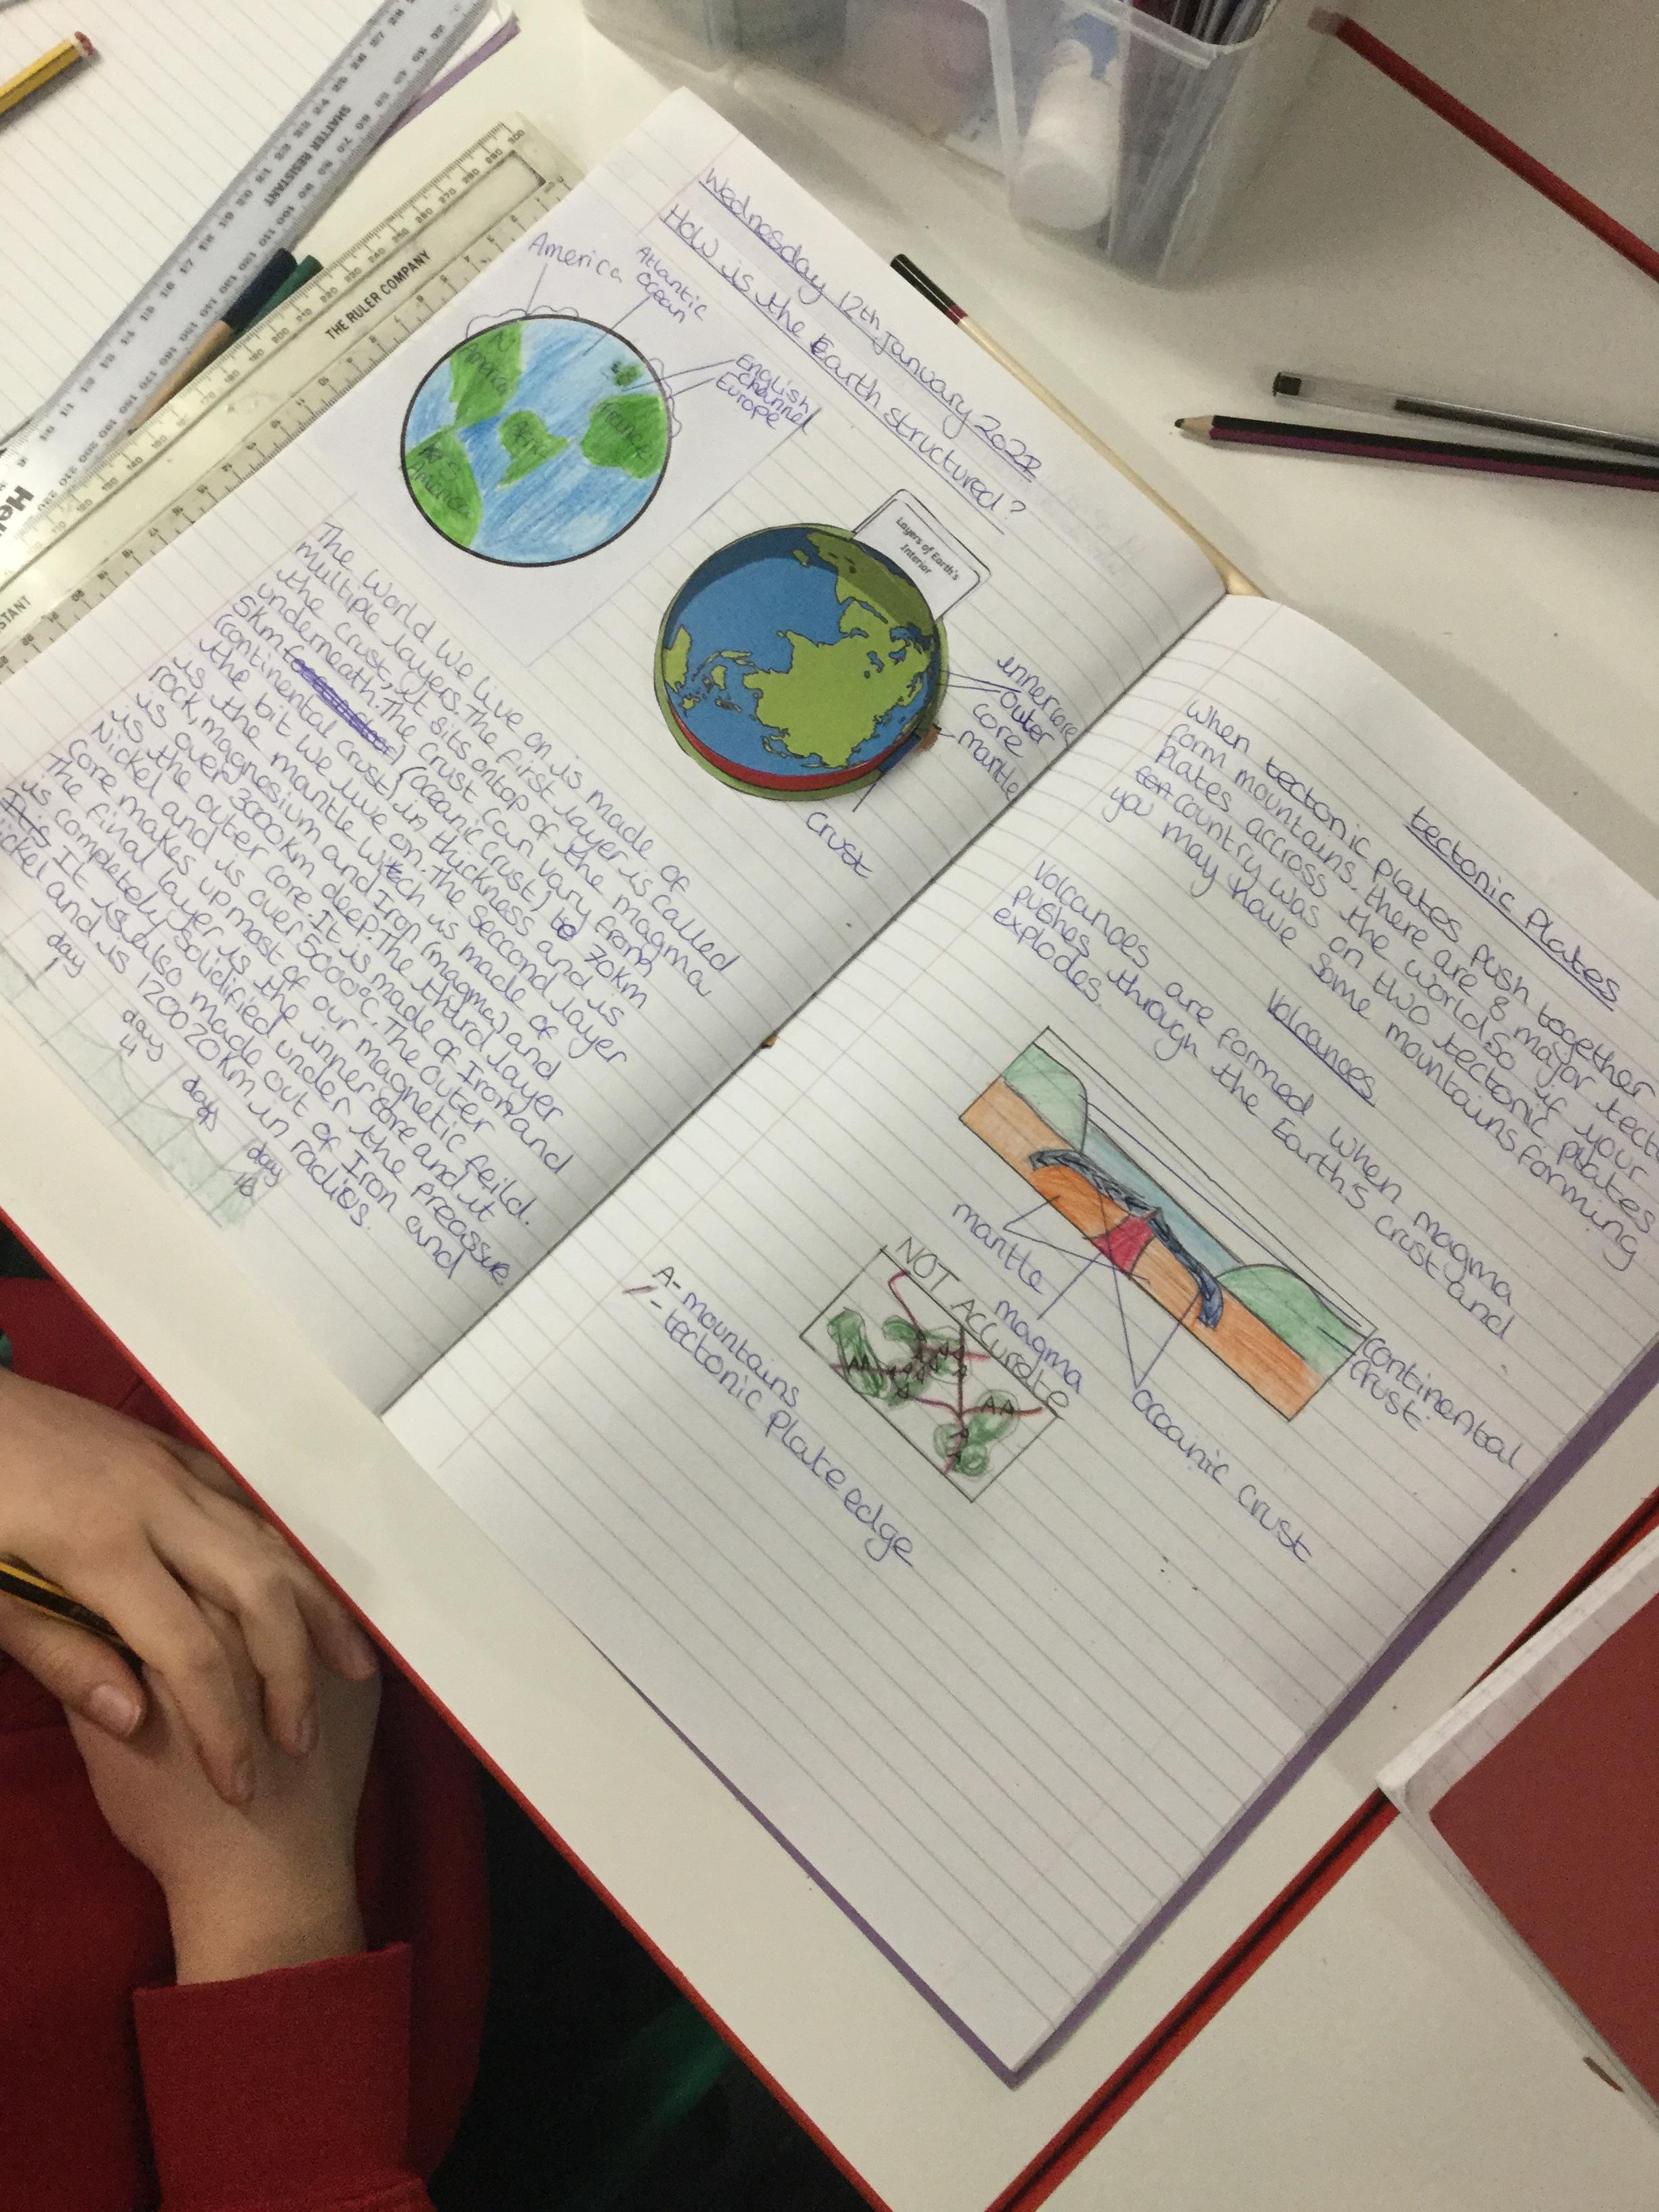 Wednesday 12th January 2022
How is the Earth structured?
America
Atlantic
Ocean
English
Channel
Europe
N
America
Africa
France
S
America
Layers of Earth's
Interior
inner core
outer
core
mantle
Crust
The World we live on is made of
multiple layers. The first layer is called
the crust, it sits ontop of the magma
underneath. The crust can vary from
5km (oceanic crust) to 70km
(continental crust) in thickness and is
the bit we live on. The seccond layer
is the mantle witch is made of
rock, magnesium and Iron (magma) and
is over 3000km deep. The third layer
is the outer core. It is made of Iron and
Nickel and is over 5000°C. The outer
Core makes up most of our magnetic feild.
The final layer is the inner core and it
is completely solidified under the preassure.
It's It is also made out of Iron and
nickel and is 1200 20km in radius.
day
1
day
4
day
day
18
tectonic Plates
When tectonic plates push together
form mountains. there are 8 major tect
plates accross the world so if your
country was on two tectonic plates
you may have some mountains forming
Volcanoes
Volcanoes are formed when magma
pushes through the Earth's crust and
explodes.
mantle
magma
Oceanic crust
Continental
Crust.
NOT Accurate
AA
AA
A- mountains
/ - tectonic plate edge
SHATTER RESISTANT
THE RULER COMPANY
Hel
STANT